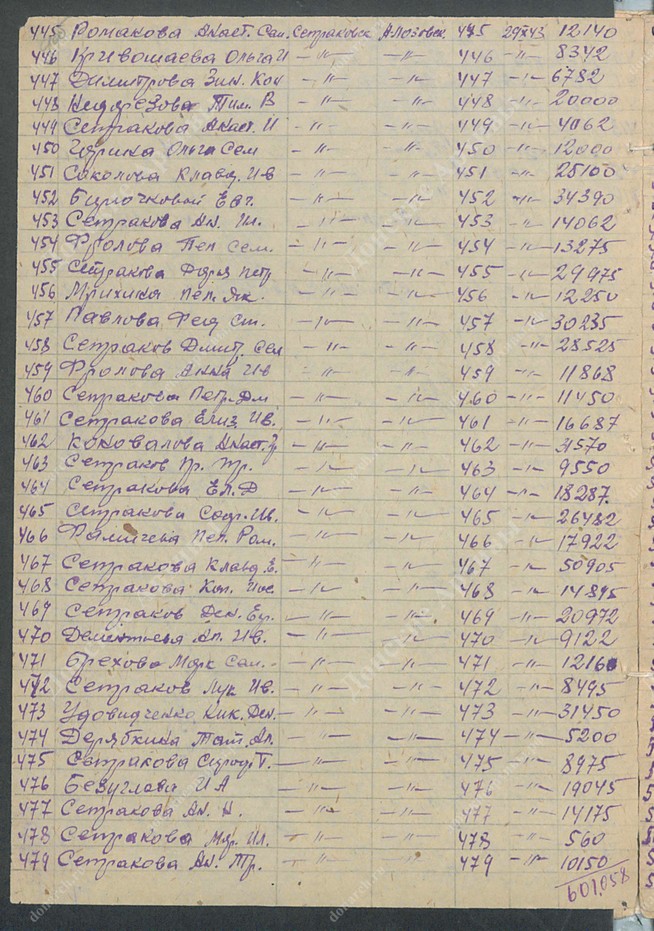 445 Ромакова Анаст. Сам. Сетраковск Алозовск. 445 29/X43 12140
446 Кривошаева Ольга И —"— —"— 446 -"- 8342
447 Димитрова Зин. Кон —"— —"— 447 -"- 6782
448 Недорезова Тим. В —"— —"— 448 -"- 20000
449 Сетракова Анаст. И —"— —"— 449 -"- 4062
450 Ольга Сем —"— —"— 450 -"- 12000
451 Соколова Клавд. Ив —"— —"— 451 -"- 25100
452 Евг. —"— —"— 452 -"- 34390
453 Сетракова Ан. —"— —"— 453 -"- 14062
454 Фролова Пел Сем. —"— —"— 454 -"- 13275
455 Сетракова Дарья Петр —"— —"— 455 -"- 29975
456 Мрихина Пел. Як. —"— —"— 456 -"- 12250
457 Павлова Феод Ст. —"— —"— 457 -"- 30235
458 Сетраков Дмит. Сем —"— —"— 458 -"- 28525
459 Фролова Анна Ив —"— —"— 459 -"- 11868
460 Сетракова Петр. Дм —"— —"— 460 -"- 11450
461 Сетракова Елиз. Ив. —"— —"— 461 -"- 16687
462 Коновалова Анаст. Гр —"— —"— 462 -"-
463 Сетраков Гр. Гр. —"— —"— 463 -"- 9550
464 Сетракова Ел. Д —"— —"— 464 -"- 18287
465 Сетракова Софр. Ив. —"— —"— 465 -"- 26482
466 Пел. Ром. —"— —"— 466 -"- 17922
467 Сетракова Клавд. Е. —"— —"— 467 -"- 50905
468 Сетракова —"— —"— 468 -"- 14895
469 Сетраков Ден. —"— —"— 469 -"- 20972
470 Дементьева Ан. Ив. —"— —"— 470 -"- 9122
471 Брехова Марк Сам. —"— —"— 471 -"- 12160
472 Сетраков Лук Ив. —"— —"— 472 -"- 8495
473 Удовидченко Ник. Ден. —"— —"— 473 -"- 31450
474 Дерябкина Тат. Ан. —"— —"— 474 -"- 5200
475 Сетракова Т. —"— —"— 475 -"- 8975
476 Безуглова И А —"— —"— 476 -"- 19045
477 Сетракова Ан. Н. —"— —"— 477 -"- 14175
478 Сетракова Мар. Ил. —"— —"— 478 -"- 560
479 Сетракова Ан. Тр. —"— —"— 479 -"- 10150
601,058